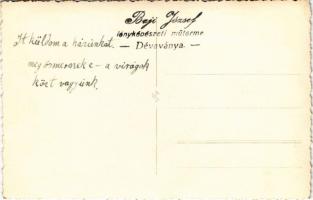 Baji József
fényképészeti műterme
— Dévaványa. —
Itt küldöm a házunkat.
megösmernek e – a virágok
közt vagyunk.